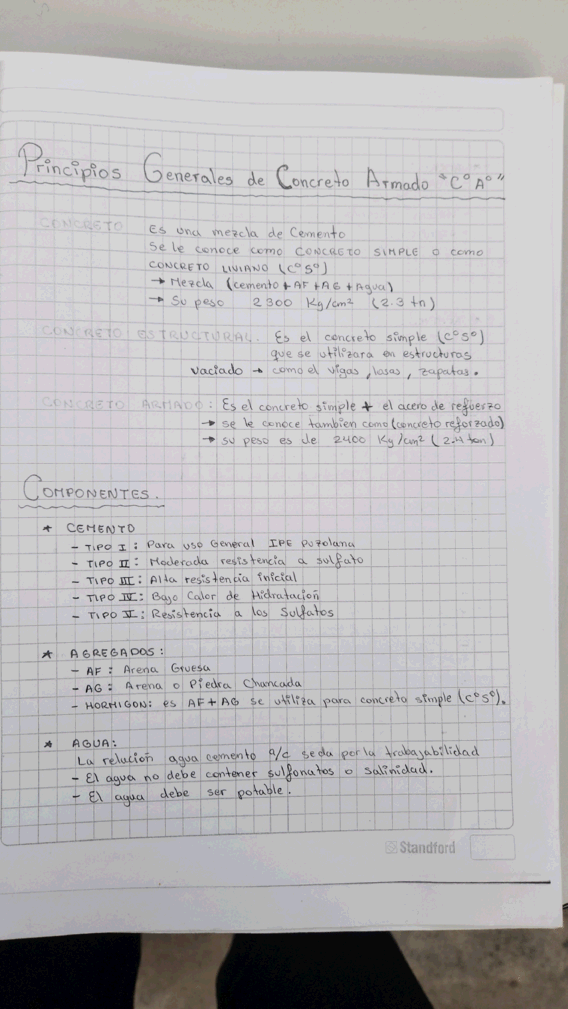 Principios Generales de Concreto Armado "C°A°"
CONCRETO Es una mezcla de Cemento
Se le conoce como CONCRETO SIMPLE o como
CONCRETO LIVIANO (C°S°)
→ Mezcla (cemento + AF + AG + Agua)
→ Su peso 2300 Kg/cm² (2.3 tn)
CONCRETO ESTRUCTURAL. Es el concreto simple (C°S°)
que se utilizara en estructuras
vaciado → como el vigas, losas, zapatas.
CONCRETO ARMADO: Es el concreto simple + el acero de refuerzo
→ se le conoce tambien como (concreto reforzado)
→ su peso es de 2400 Kg/cm² (2.4 ton)
COMPONENTES.
* CEMENTO
- TIPO I: Para uso General IPE Puzolana
- TIPO II: Moderada resistencia a sulfato
- TIPO III: Alta resistencia inicial
- TIPO IV: Bajo Calor de Hidratación
- TIPO V: Resistencia a los Sulfatos
* AGREGADOS:
- AF: Arena Gruesa
- AG: Arena o Piedra Chancada
- HORMIGON: es AF + AG se utiliza para concreto simple (C°S°).
* AGUA:
La relacion agua cemento a/c se da por la trabajabilidad
- El agua no debe contener sulfonatos o salinidad.
- El agua debe ser potable.
Standford